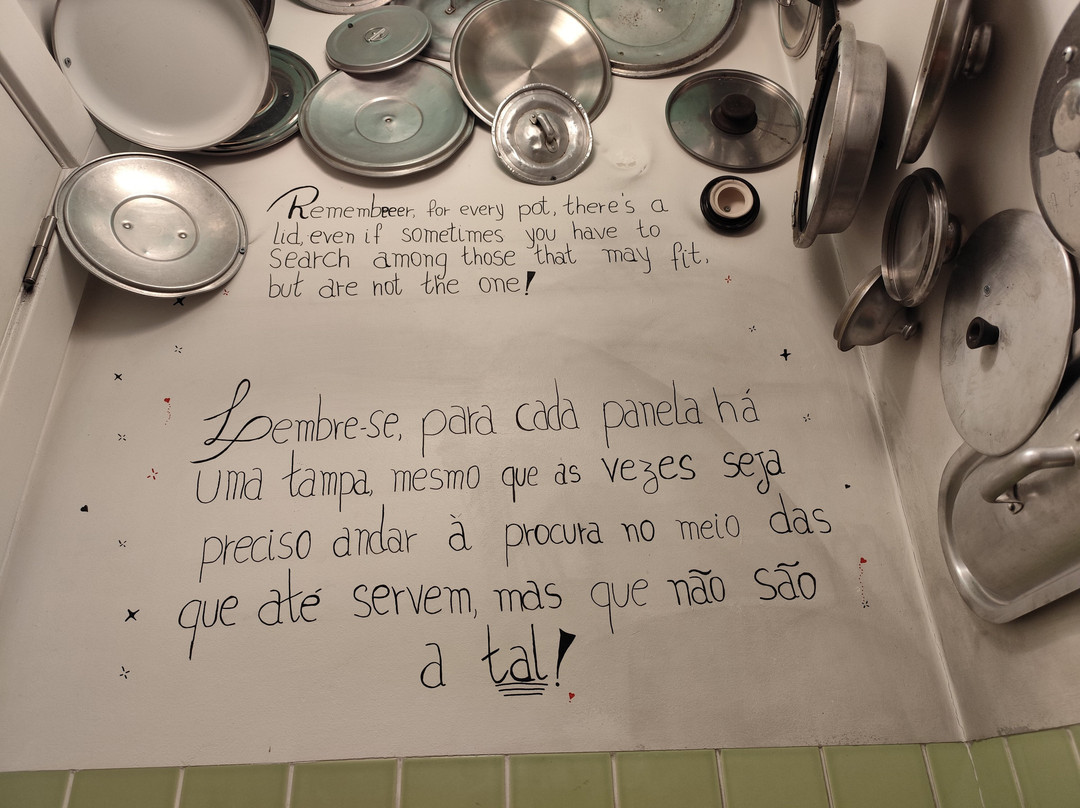 Remembeeer, for every pot, there's a
lid, even if sometimes you have to
search among those that may fit,
but are not the one!
Lembre-se, para cada panela há
uma tampa, mesmo que às vezes seja
preciso andar à procura no meio das
que até servem, mas que não são
a tal!